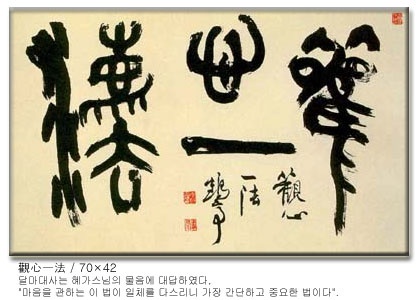 觀心一法
觀心
一法
觀心一法 / 70×42
달마대사는 혜가스님의 물음에 대답하였다.
"마음을 관하는 이 법이 일체를 다스리니 가장 간단하고 중요한 법이다".